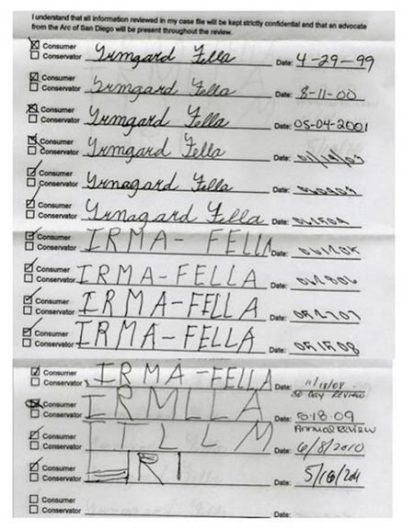 I understand that all information reviewed in my case file will be kept strictly confidential and that an advocate
from the Arc of San Diego will be present throughout the review.
Consumer
Conservator Yrmgard Fella Date: 4-29-99
Consumer
Conservator Yrmgard Fella Date: 8-11-00
Consumer
Conservator Yrmgard Fella Date: 05-04-2001
Consumer
Conservator Yrmgard Fella Date:
Consumer
Conservator Yrnagard Fella Date:
Consumer
Conservator Yrnagard Fella Date:
Consumer
Conservator IRMA- FELLA Date:
Consumer
Conservator IRMA-FELLA Date:
Consumer
Conservator IRMA-FELLA Date:
Consumer
Conservator IRMA-FELLA Date:
Consumer
Conservator IRMA-FELLA Date: 11/18/08
30 DAY REVIEW
Consumer
Conservator IRMLLA Date: 5-18-09
ANNUAL REVIEW
Consumer
Conservator ITLLM Date: 6/8/2010
Consumer
Conservator Date:
Consumer
Conservator Date: